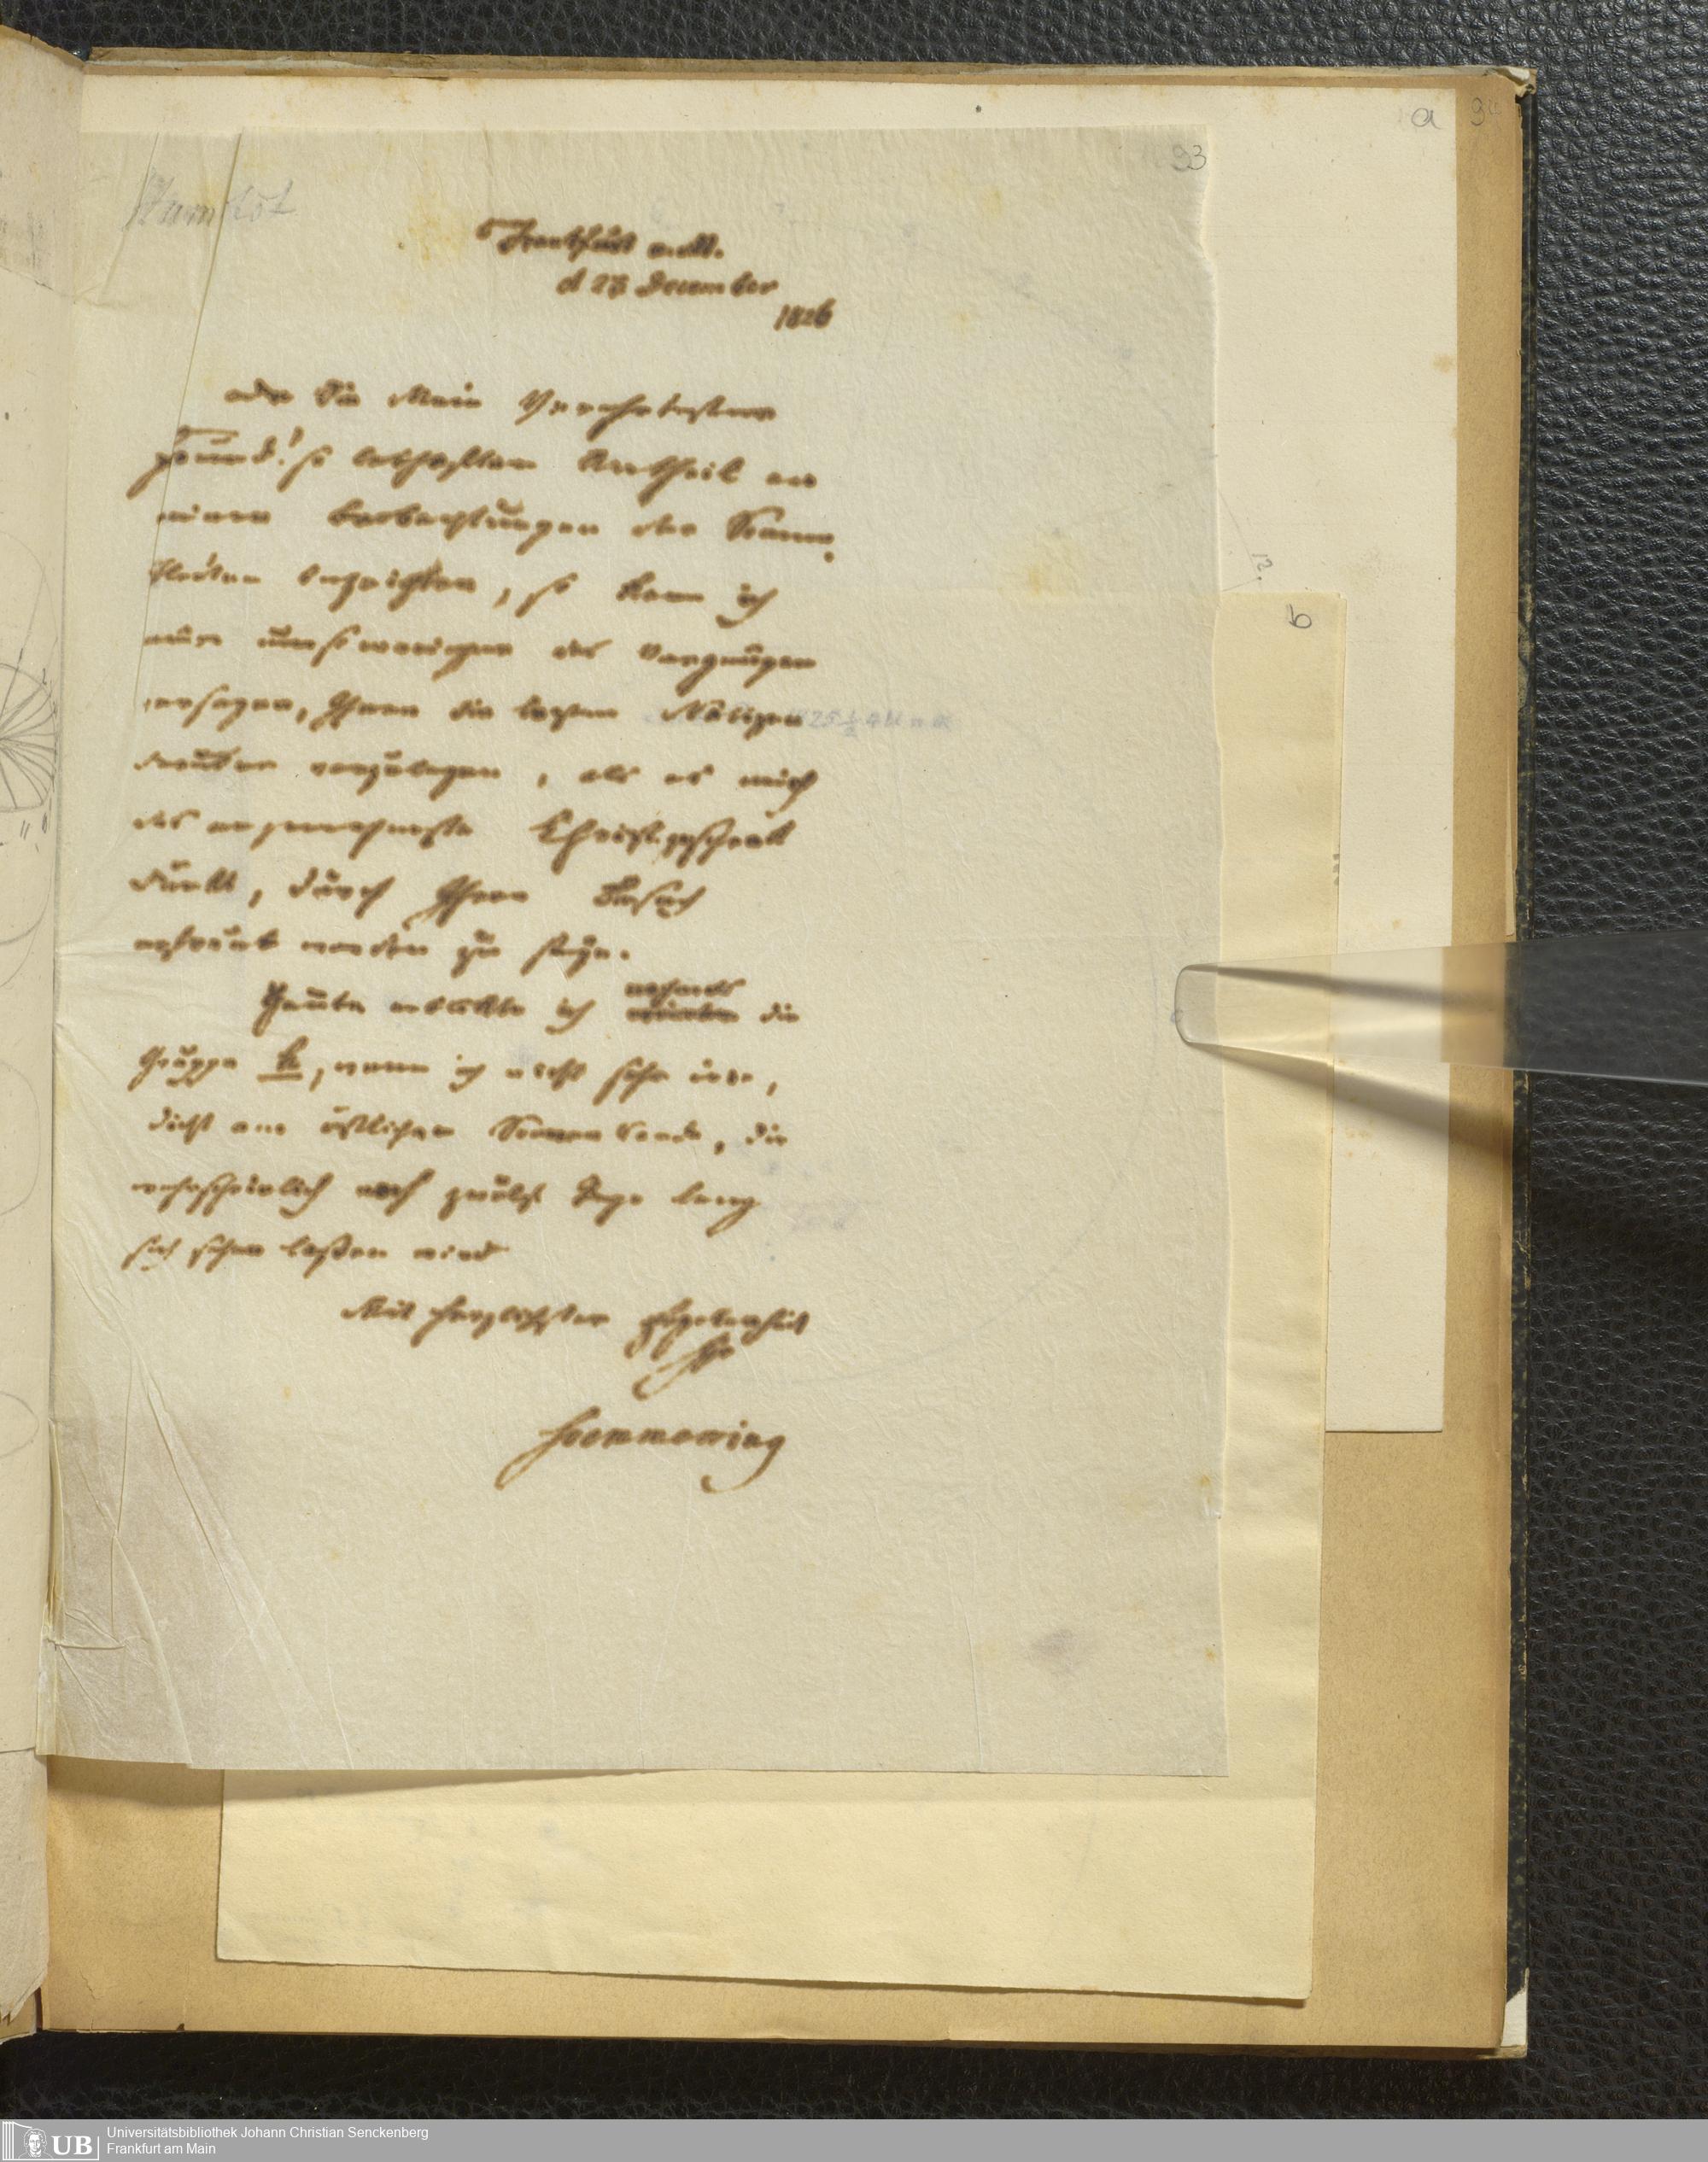 a
93
Frankfurt a. M.
d 28 December
1826
Sie Mein Verehrtester
Freund! so lebhaften Antheil an
meinen Beobachtungen der Sonnen-
flecken bezeigten, so kann ich
mir umsoweniger das Vergnügen
versagen, Ihnen die lezten Notizen
darüber vorzulegen, als es mich
das angenehmste Christgeschenk
dünkt, durch Ihren Besuch
erfreut worden zu seyn.
Heute erblickte ich die
Gruppe k, wenn ich nicht sehr irre,
dicht am östlichen Sonnenrande, die
wahrscheinlich noch zwölf Tage lang
sich sehen lassen wird
Mit herzlichster Ergebenheit
Ihr
Soemmerring
b
UB
Universitätsbibliothek Johann Christian Senckenberg
Frankfurt am Main